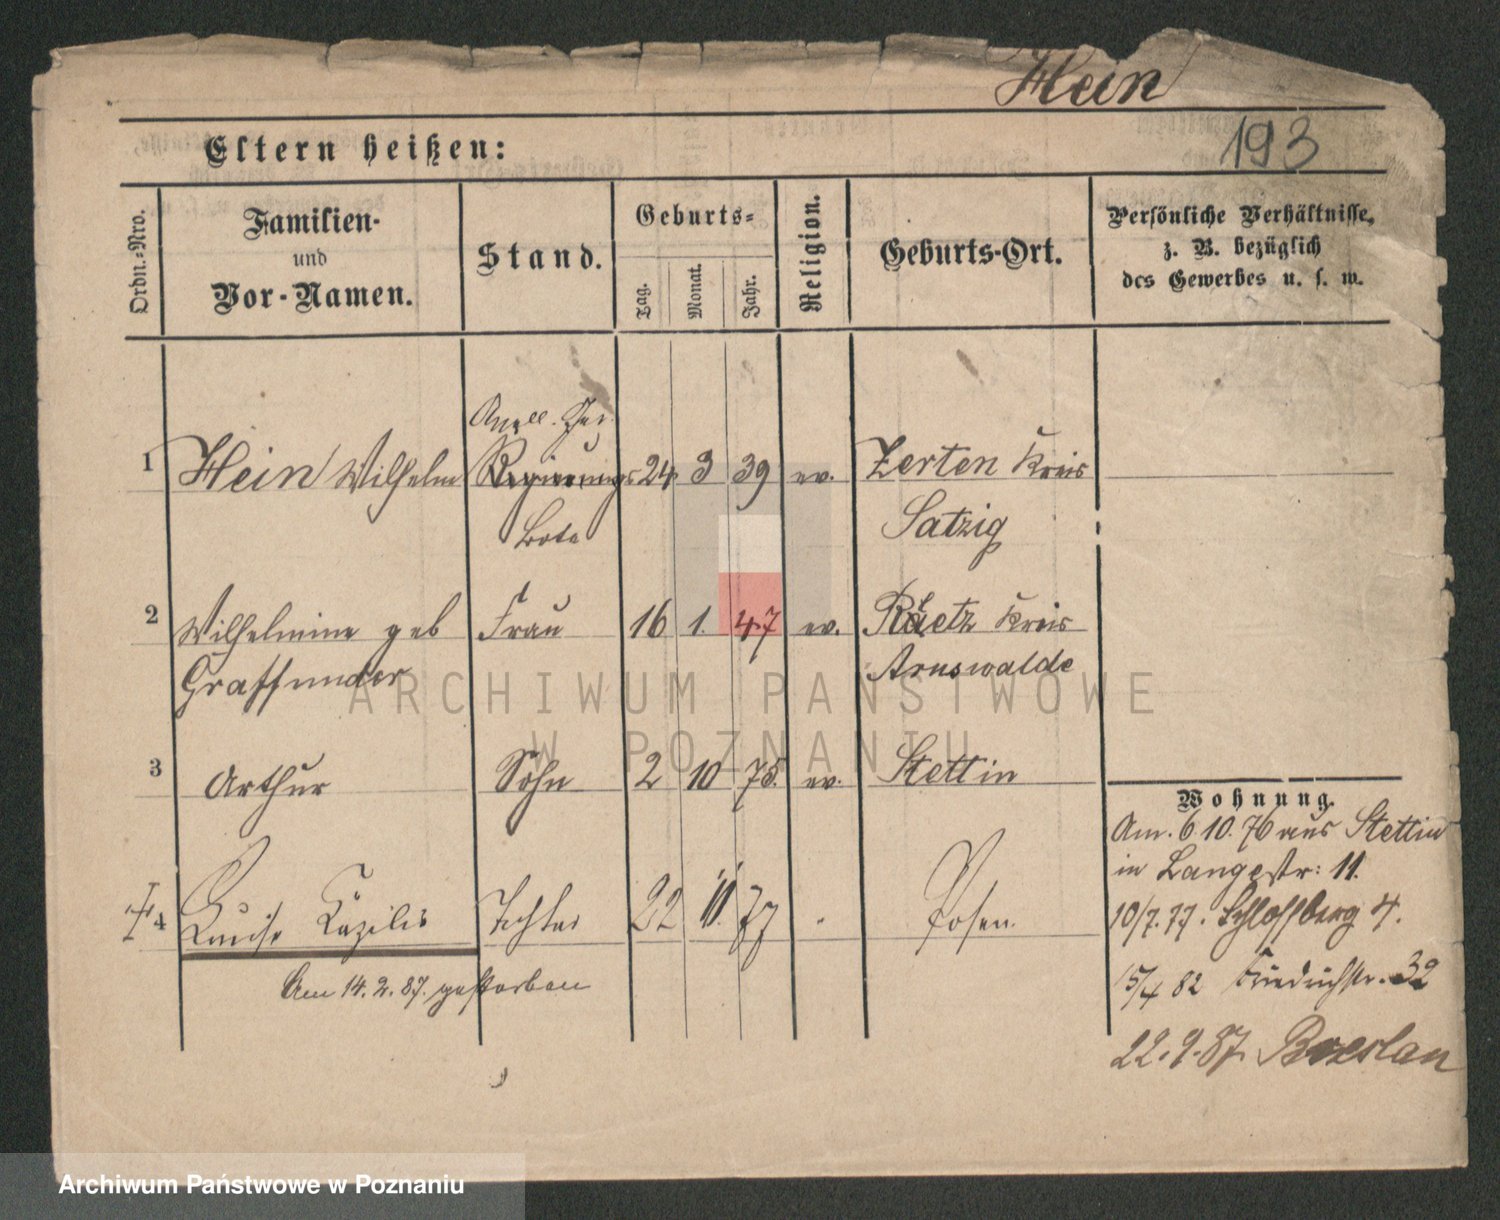 Hein
193
Eltern heißen:
Ordn.-Nro.
Familien-
und
Vor-Namen.
Stand.
Geburts-
Tag.
Monat.
Jahr.
Religion.
Geburts-Ort.
Persönliche Verhältnisse,
z. B. bezüglich
des Gewerbes u. s. w.
1 Hein Wilhelm Regierungs 24 3 39 ev. Zerten Kreis
Bote Satzig
2 Wilhelmine geb Frau 16 1. 47 ev. Raetz Kreis
Graffunder Arnswalde
3 Arthur Sohn 2 10 75. ev. Stettin
4 Luise Cäzilie Tochter 22 11. 77 Posen.
Am 14. 2. 87. gestorben
Wohnung.
Am. 6. 10. 76 aus Stettin
in Langestr: 11.
10/7. 77. Schloßberg 4.
15/4 82 Friedrichstr. 32
22. 9. 87. Breslau
ARCHIWUM PAŃSTWOWE
W POZNANIU
Archiwum Państwowe w Poznaniu